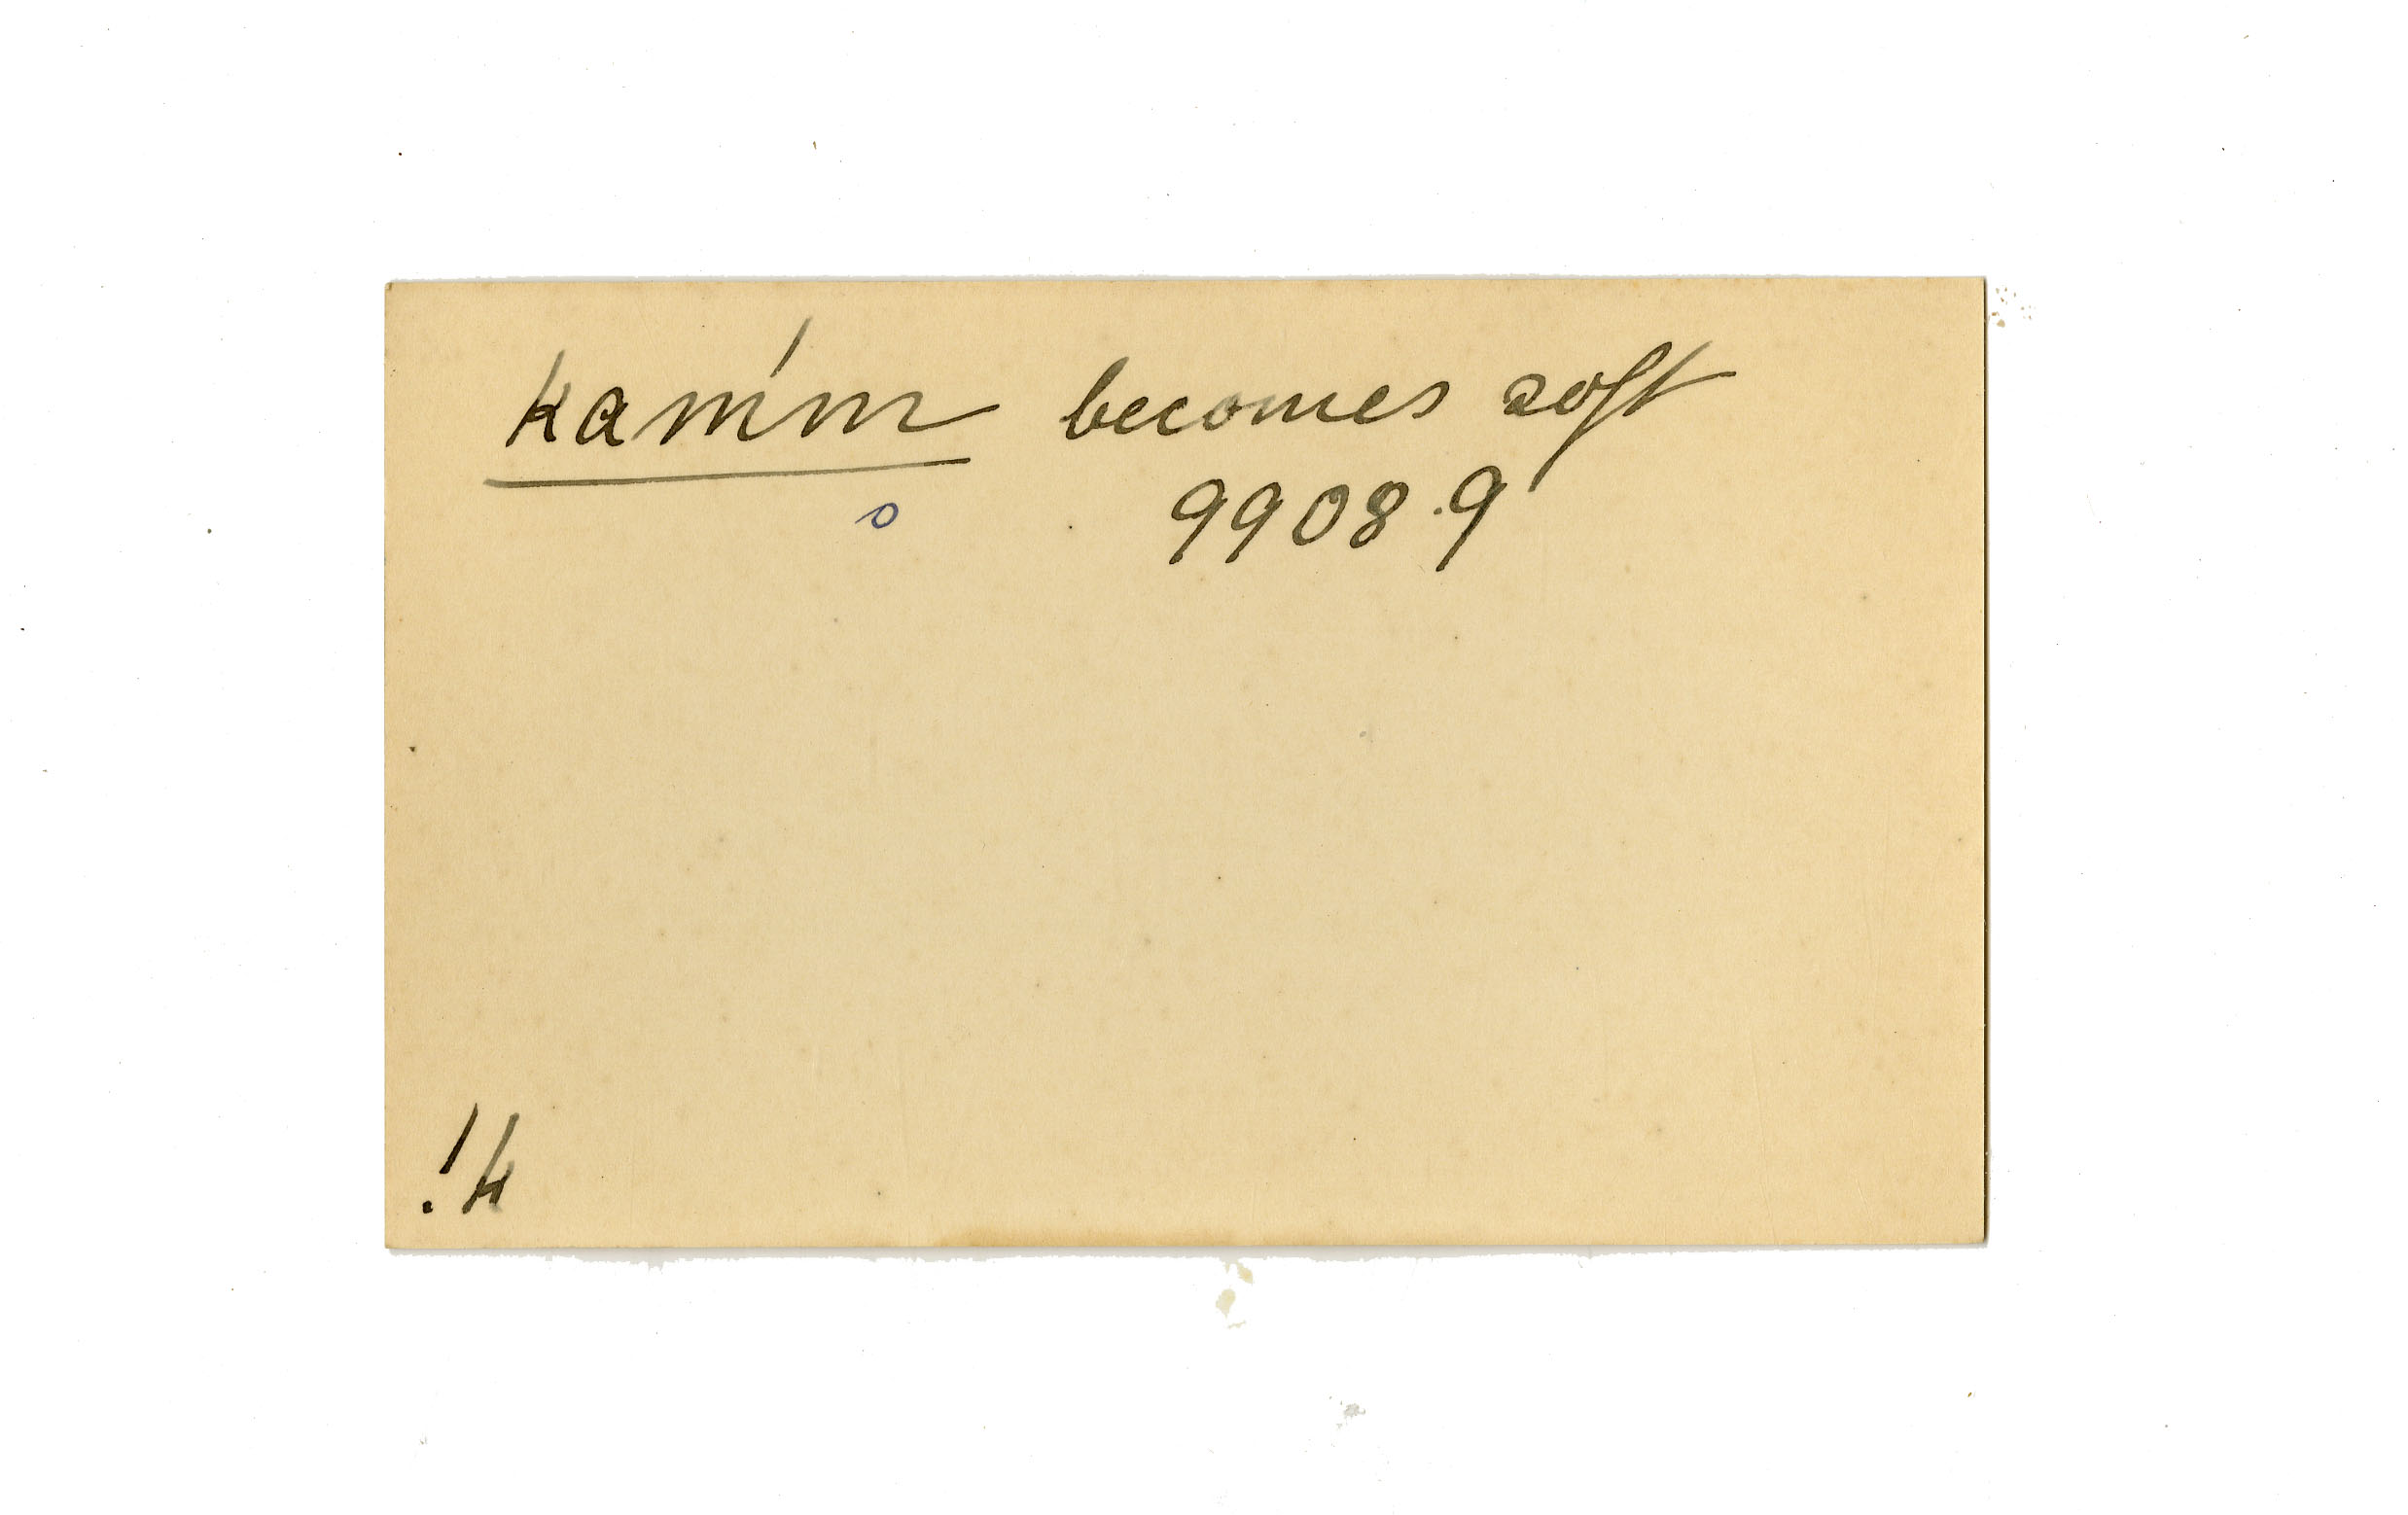 kam'm becomes soft
9908.9
!k